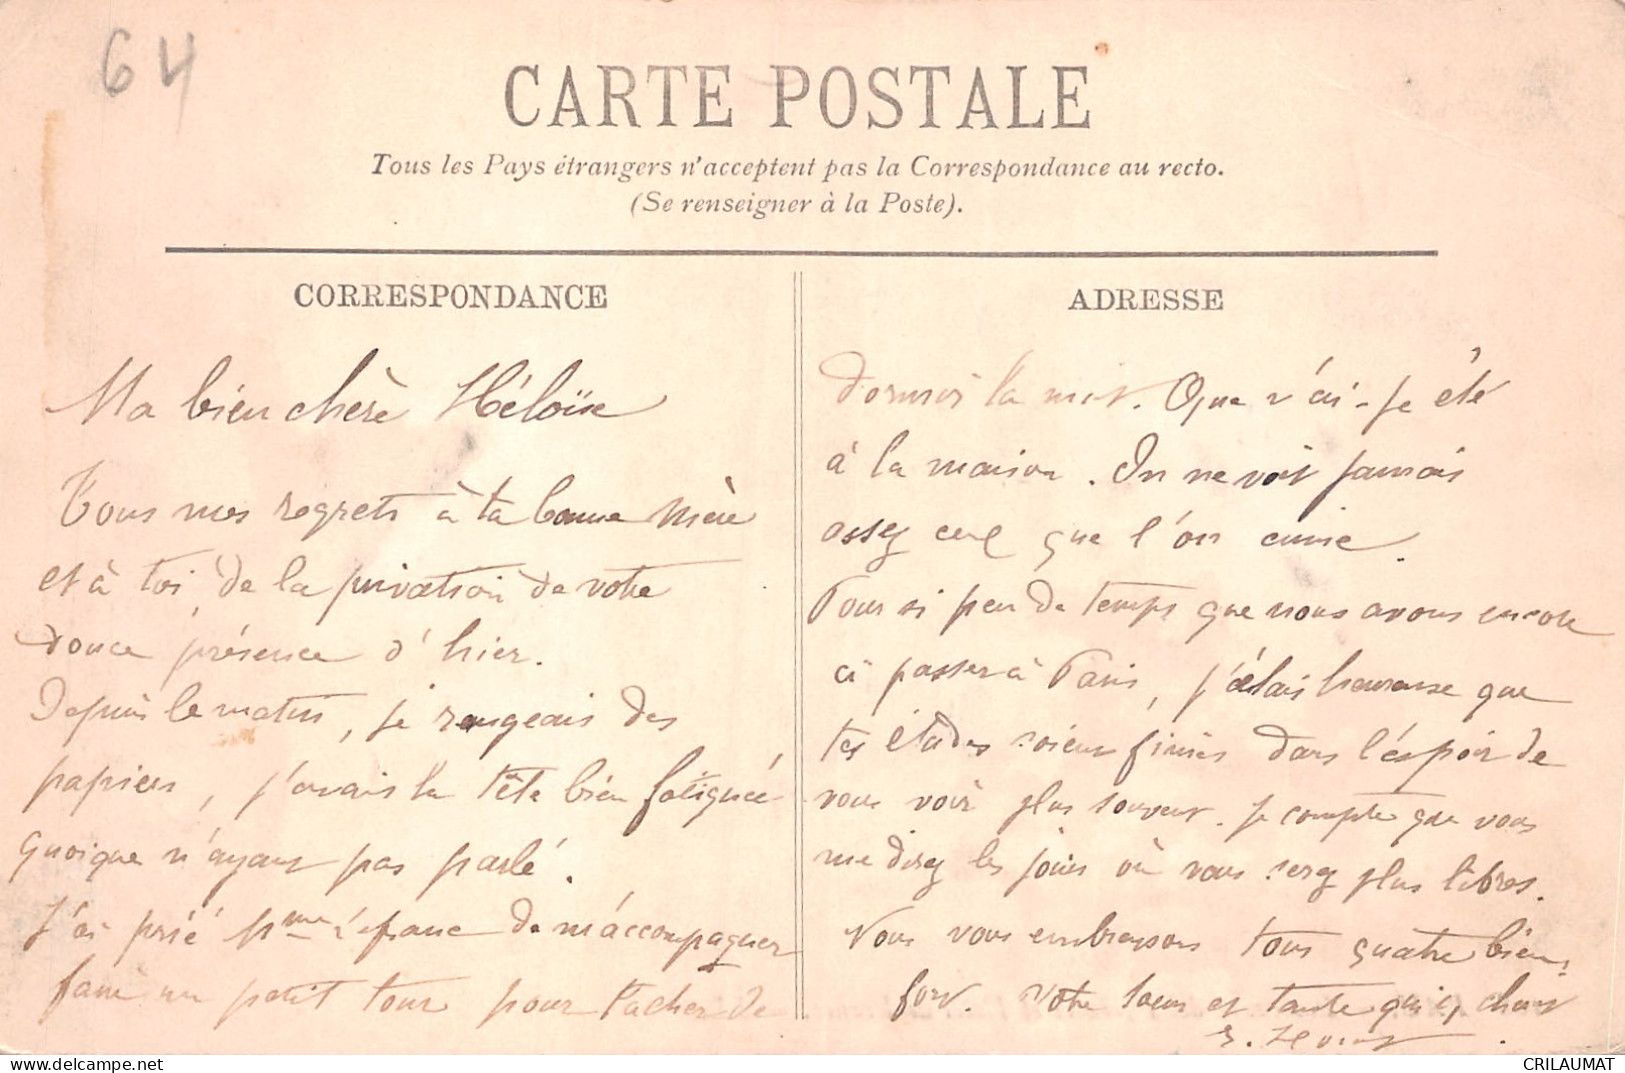 64
CARTE POSTALE
Tous les Pays étrangers n'acceptent pas la Correspondance au recto.
(Se renseigner à la Poste).
CORRESPONDANCE
Ma bien chère Héloïse
Tous mes regrets à ta bonne mère
et à toi, de la privation de votre
douce présence d'hier.
Depuis le matin, je rangeais des
papiers, j'avais la tête bien fatiguée
quoique n'ayant pas parlé.
J'ai prié Mme de m'accompagner
faire un petit tour pour tacher de
ADRESSE
dormir la nuit. Que n'ai-je été
à la maison. On ne voit jamais
assez ceux que l'on aime.
Pour si peu de temps que nous avons encore
à passer à Paris, j'étais heureuse que
tes études soient finies dans l'éspoir de
vous voir plus souvent. Je compte que vous
me direz les jours où vous serez plus libres.
Nous vous embrassons tous quatre bien
fort. Votre soeur et tante qui v.
CRILAUMAT